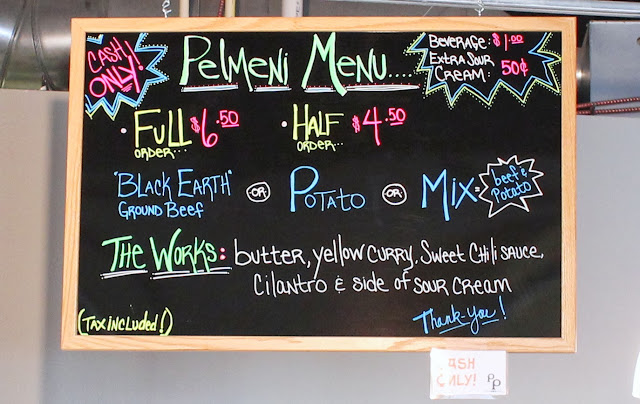 CASH
ONLY!
PELMENI MENU....
BEVERAGE: $1.00
EXTRA SOUR
CREAM: 50¢
• FULL $6.50
ORDER...
• HALF $4.50
ORDER...
"BLACK EARTH"
GROUND BEEF
OR
POTATO
OR
MIX=
beef &
Potato
THE WORKS: butter, yellow curry, Sweet Chili sauce,
Cilantro & side of sour cream
Thank-you!
(TAX INCLUDED!)
CASH
ONLY!
PP